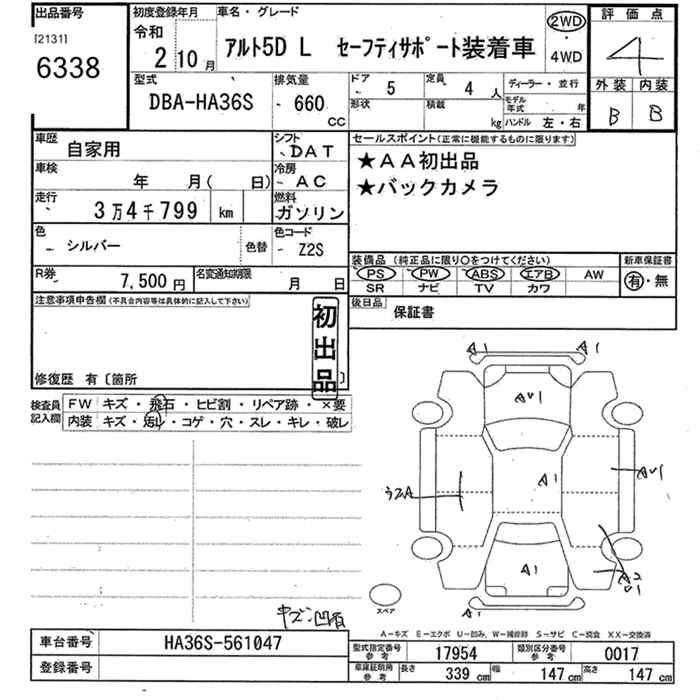 出品番号
[2131]
6338
初度登録年月
令和
2 10月
車名・グレード
アルト5D L セーフティサポート装着車
2WD
・
4WD
評価点
4
外装 内装
B B
型式
DBA-HA36S
排気量
660
CC
ドア
5
定員
4 人
形状
積載
kg
ディーラー・並行
モデル年式 年
ハンドル 左・右
車歴
自家用
シフト
DAT
車検
年 月( 日)
冷房
AC
走行
3万4千799 km
燃料
ガソリン
色
シルバー
色替
色コード
Z2S
R券
7,500円
名変通知期限
月 日
セールスポイント(正常に機能するものに限ります)
★AA初出品
★バックカメラ
装備品(純正品に限り○をつけてください)
新車保証書
PS PW ABS エアB AW
SR ナビ TV カワ
有・無
後日品
保証書
注意事項申告欄(不具合内容等は具体的に記入して下さい)
初出品
修復歴 有〔箇所 〕
検査員記入欄
FW キズ・飛石・ヒビ割・リペア跡・×要
内装 キズ・汚レ・コゲ・穴・スレ・キレ・破レ
A1 A1
AU1
A1
AU1
A1
A1
スペア
A-キズ E-エクボ U-凹み、W-補修跡 S-サビ C-腐食 XX-交換済
車台番号
HA36S-561047
登録番号
型式指定番号
参考
17954
類別区分番号
参考
0017
車庫証明用
参考
長さ 339 cm
幅 147 cm
高さ 147 cm